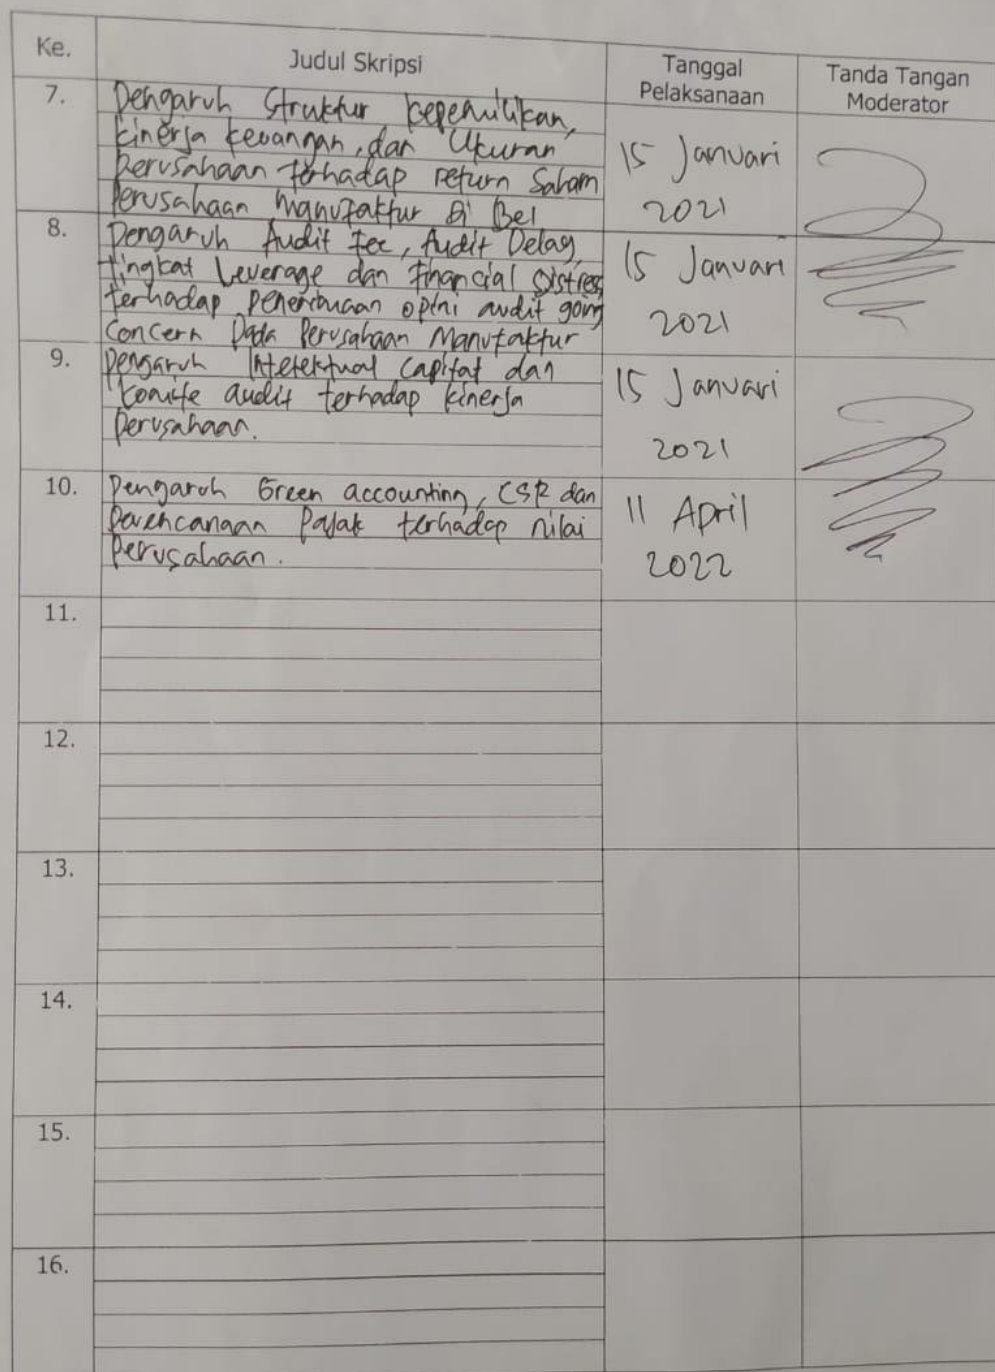 Ke.
Judul Skripsi
Tanggal
Pelaksanaan
Tanda Tangan
Moderator
7.
Pengaruh Struktur kepemilikan,
kinerja keuangan, dan Ukuran
perusahaan terhadap return Saham
Perusahaan manufaktur di Bei
15 Januari
2021
8.
Pengaruh Audit fee, Audit Delay,
tingkat Leverage dan financial distress
terhadap penerimaan opini audit going
concern pada Perusahaan Manufaktur
15 Januari
2021
9.
Pengaruh Intelektual capital dan
komite audit terhadap kinerja
perusahaan.
15 Januari
2021
10.
Pengaruh Green accounting, CSR dan
perencanaan Pajak terhadap nilai
Perusahaan.
11 April
2022
11.
12.
13.
14.
15.
16.